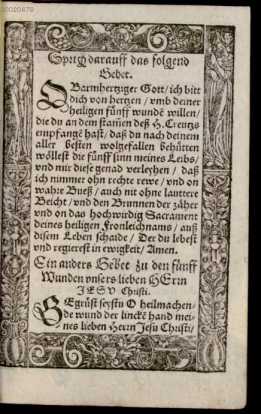 Sprich darauff das folgend
Gebet.
O Barmhertziger Gott / ich bitt
dich von hertzen / vmb deiner
heiligen fünff wundẽ willen /
die du an dem stam̃en deß H. Creutzs
empfangẽ hast / daß du nach deinem
aller besten wolgefallen behütten
wöllest die fünff sinn meines Leibs /
vnd mir diese genad verleyhen / daß
ich nimmer ohn rechte rewe / vnd on
wahre Bueß / auch nit ohne lauttere
Beicht / vnd den Brunnen der zäher
vnd on das hochwirdig Sacrament
deines heiligen Fronleichnams / auß
disem Leben schaide / Der du lebest
vnd regierest in ewigkeit / Amen.
Ein anders Gebet zu den fünff
Wunden vnsers lieben HErrn
JESV Christi.
GEgrüst seystu O heilmachen-
de wund der linckẽ hand mei-
nes lieben Herrn Jesu Christi /